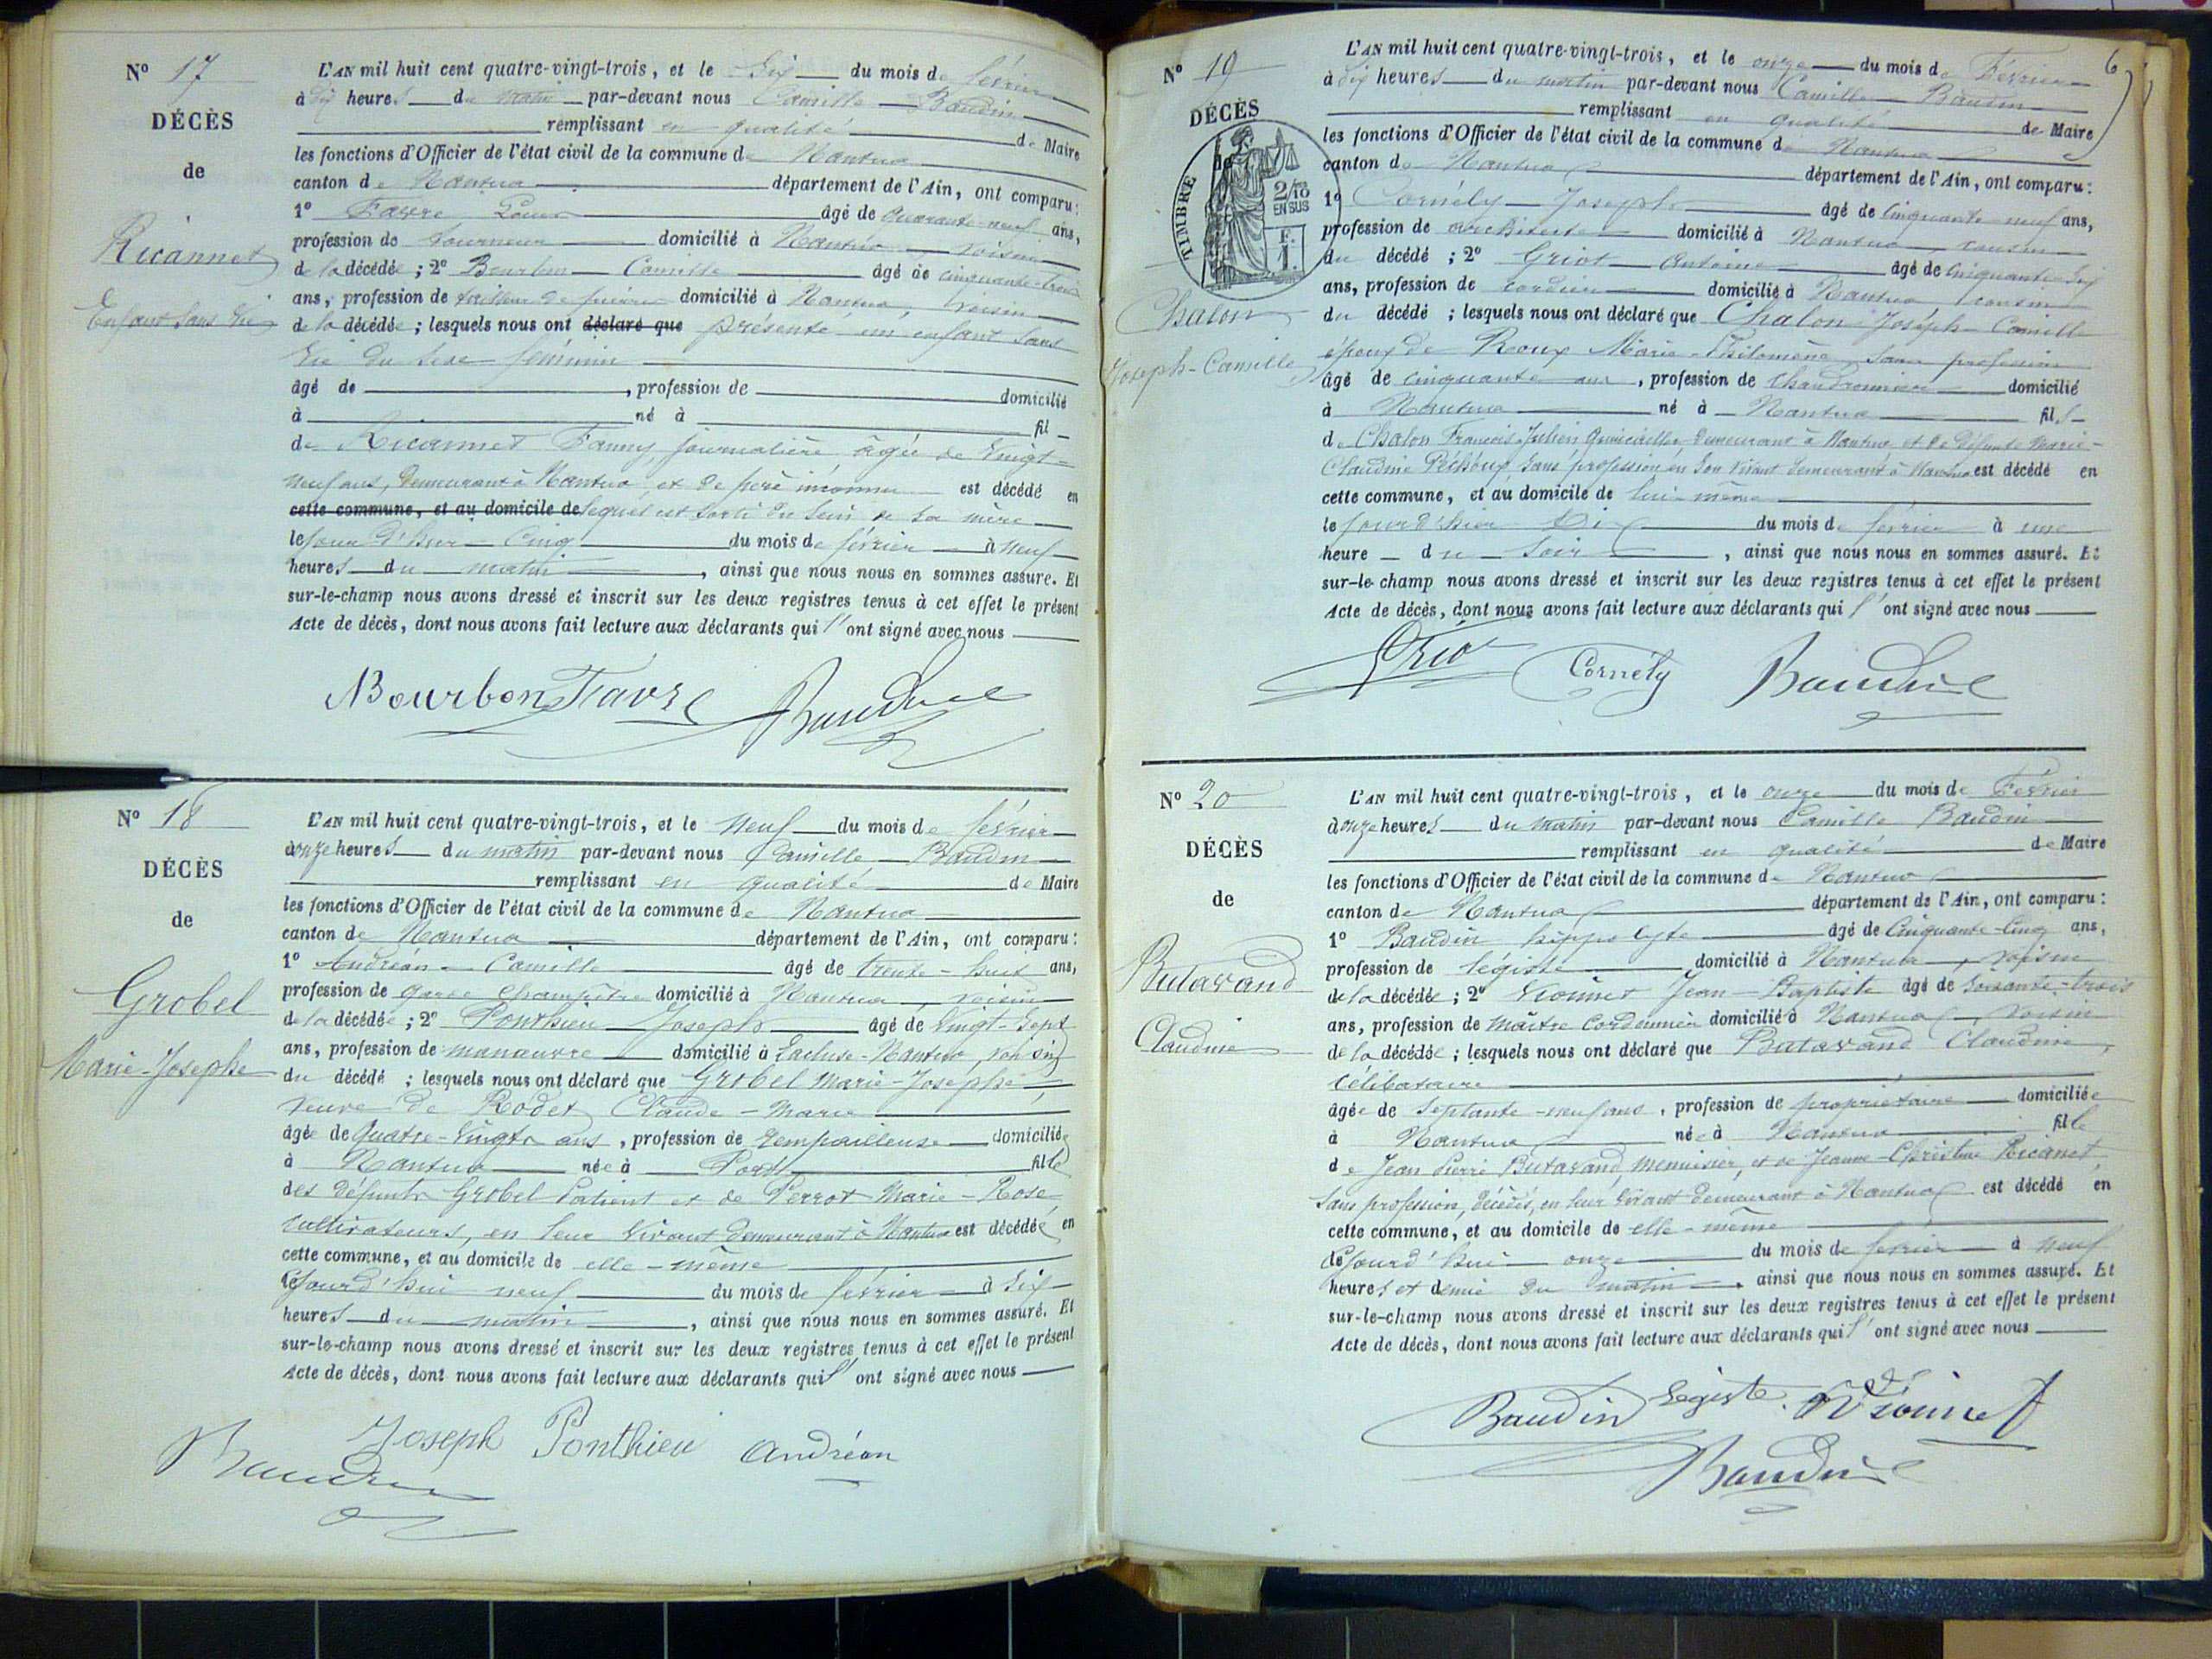 N° 17
DÉCÈS
de
Ricannet
Enfant sans vie
L'AN mil huit cent quatre-vingt-trois, et le six du mois de février
à dix heures du matin par-devant nous Camille Baudin
remplissant en qualité de Maire
les fonctions d'Officier de l'état civil de la commune de Nantua
canton de Nantua département de l'Ain, ont comparu:
1° Favre Louis âgé de quarante-neuf ans,
profession de tourneur domicilié à Nantua, voisin
de la décédée; 2° Bourbon Camille âgé de cinquante-trois
ans, profession de tailleur de pierres domicilié à Nantua, voisin
de la décédée; lesquels nous ont déclaré que présenté un enfant sans
vie du sexe féminin
âgé de , profession de domicilié
à né à fil
de Ricannet Fanny, journalière âgée de vingt-
neuf ans, demeurant à Nantua, et de père inconnu est décédé en
cette commune, et au domicile de lequel est sorti du sein de sa mère
le jour d'hier cinq du mois de février à neuf
heures du matin, ainsi que nous nous en sommes assuré. Et
sur-le-champ nous avons dressé et inscrit sur les deux registres tenus à cet effet le présent
Acte de décès, dont nous avons fait lecture aux déclarants qui l'ont signé avec nous
Bourbon Favre Baudin
N° 18
DÉCÈS
de
Grobel
Marie-Josephe
L'AN mil huit cent quatre-vingt-trois, et le neuf du mois de février
à onze heures du matin par-devant nous Camille Baudin
remplissant en qualité de Maire
les fonctions d'Officier de l'état civil de la commune de Nantua
canton de Nantua département de l'Ain, ont comparu:
1° Andréan Camille âgé de trente-huit ans,
profession de garde champêtre domicilié à Nantua, voisin
de la décédée; 2° Ponthieu Joseph âgé de vingt-sept
ans, profession de manœuvre domicilié à Lacluse-Nantua, voisin
du décédé; lesquels nous ont déclaré que Grobel Marie-Josephe,
veuve de Rodet Claude-Marie
âgée de quatre-vingts ans, profession de rempailleuse domiciliée
à Nantua née à Port fille
des défunts Grobel Patient et de Perrot Marie-Rose
cultivateurs, en leur vivant demeurant à Nantua est décédée en
cette commune, et au domicile de elle-même
le jourd'hui neuf du mois de février à six
heures du matin, ainsi que nous nous en sommes assuré. Et
sur-le-champ nous avons dressé et inscrit sur les deux registres tenus à cet effet le présent
Acte de décès, dont nous avons fait lecture aux déclarants qui l'ont signé avec nous
Baudin Joseph Ponthieu Andréan
6
N° 19
DÉCÈS
de
TIMBRE
2/10
EN SUS
F.
1.
Chalon
Joseph-Camille
L'AN mil huit cent quatre-vingt-trois, et le onze du mois de Février
à dix heures du matin par-devant nous Camille Baudin
remplissant en qualité de Maire
les fonctions d'Officier de l'état civil de la commune de Nantua
canton de Nantua département de l'Ain, ont comparu:
1° Cornély Joseph âgé de cinquante-neuf ans,
profession de architecte domicilié à Nantua, cousin
du décédé; 2° Griot Antoine âgé de cinquante-six
ans, profession de cordier domicilié à Nantua, cousin
du décédé; lesquels nous ont déclaré que Chalon Joseph-Camille
époux de Roux Marie-Philomène, sans profession
âgé de cinquante ans, profession de chaudronnier domicilié
à Nantua né à Nantua fils
de Chalon François-Julien, quincailler, demeurant à Nantua, et de défunte Marie-
Claudine sans profession en son vivant demeurant à Nantua est décédé en
cette commune, et au domicile de lui-même
le jour d'hier dix du mois de février à une
heure du soir, ainsi que nous nous en sommes assuré. Et
sur-le-champ nous avons dressé et inscrit sur les deux registres tenus à cet effet le présent
Acte de décès, dont nous avons fait lecture aux déclarants qui l'ont signé avec nous
Griot Cornély Baudin
N° 20
DÉCÈS
de
Butavand
Claudine
L'AN mil huit cent quatre-vingt-trois, et le onze du mois de Février
à onze heures du matin par-devant nous Camille Baudin
remplissant en qualité de Maire
les fonctions d'Officier de l'état civil de la commune de Nantua
canton de Nantua département de l'Ain, ont comparu:
1° Baudin hippolyte âgé de cinquante-cinq ans,
profession de légiste domicilié à Nantua, voisin
de la décédée; 2° Vionnet Jean-Baptiste âgé de soixante-trois
ans, profession de maître cordonnier domicilié à Nantua, voisin
de la décédée; lesquels nous ont déclaré que Butavand Claudine,
célibataire
âgée de septante-neuf ans, profession de propriétaire domiciliée
à Nantua née à Nantua fille
de Jean Pierre Butavand, menuisier, et de Jeanne-Christine Ricanet,
sans profession, décédés, en leur vivant demeurant à Nantua est décédé en
cette commune, et au domicile de elle-même
le jourd'hui onze du mois de février à neuf
heures et demie du matin, ainsi que nous nous en sommes assuré. Et
sur-le-champ nous avons dressé et inscrit sur les deux registres tenus à cet effet le présent
Acte de décès, dont nous avons fait lecture aux déclarants qui l'ont signé avec nous
Baudin Légiste Vionnet
Baudin